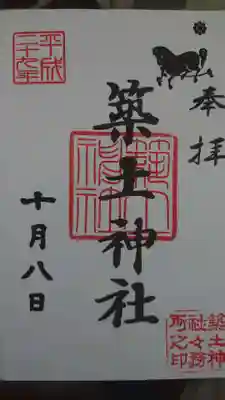 奉拝
築土神社
十月八日
平成
二十九年
築土神
社社務
所之印